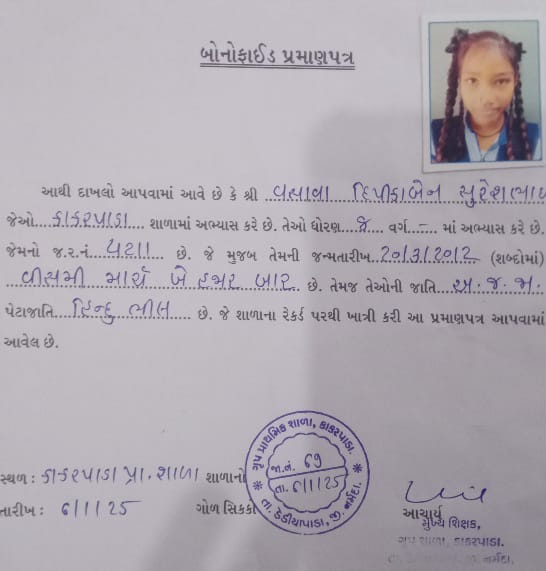 બોનોફાઈડ પ્રમાણપત્ર
આથી દાખલો આપવામાં આવે છે કે શ્રી વસાવા દિપીકાબેન સુરેશભાઇ
જેઓ કાકરપાડા શાળામાં અભ્યાસ કરે છે. તેઓ ધોરણ ૭ વર્ગ – માં અભ્યાસ કરે છે.
જેમનો જ.ર.નં ૫૨૧૧ છે. જે મુજબ તેમની જન્મતારીખ 20/3/2012 (શબ્દોમાં
) વીસમી માર્ચ બે હજાર બાર છે. તેમજ તેઓની જાતિ અ.જ.જા.
પેટાજાતિ હિન્દુ ભીલ છે. જે શાળાના રેકર્ડ પરથી ખાત્રી કરી આ પ્રમાણપત્ર આપવામાં
આવેલ છે.
સ્થળ : કાકરપાડા પ્રા. શાળા શાળાનો
તારીખ : 6/1/25 ગોળ સિક્કો
ગૃપ પ્રાથમિક શાળા, કાકરપાડા.
જા.નં. 69
તા. 6/1/25
તા. ડેડીયાપાડા, જી. નર્મદા.
આચાર્ય
મુખ્ય શિક્ષક,
ગૃપ શાળા, કાકરપાડા.
જી. નર્મદા.